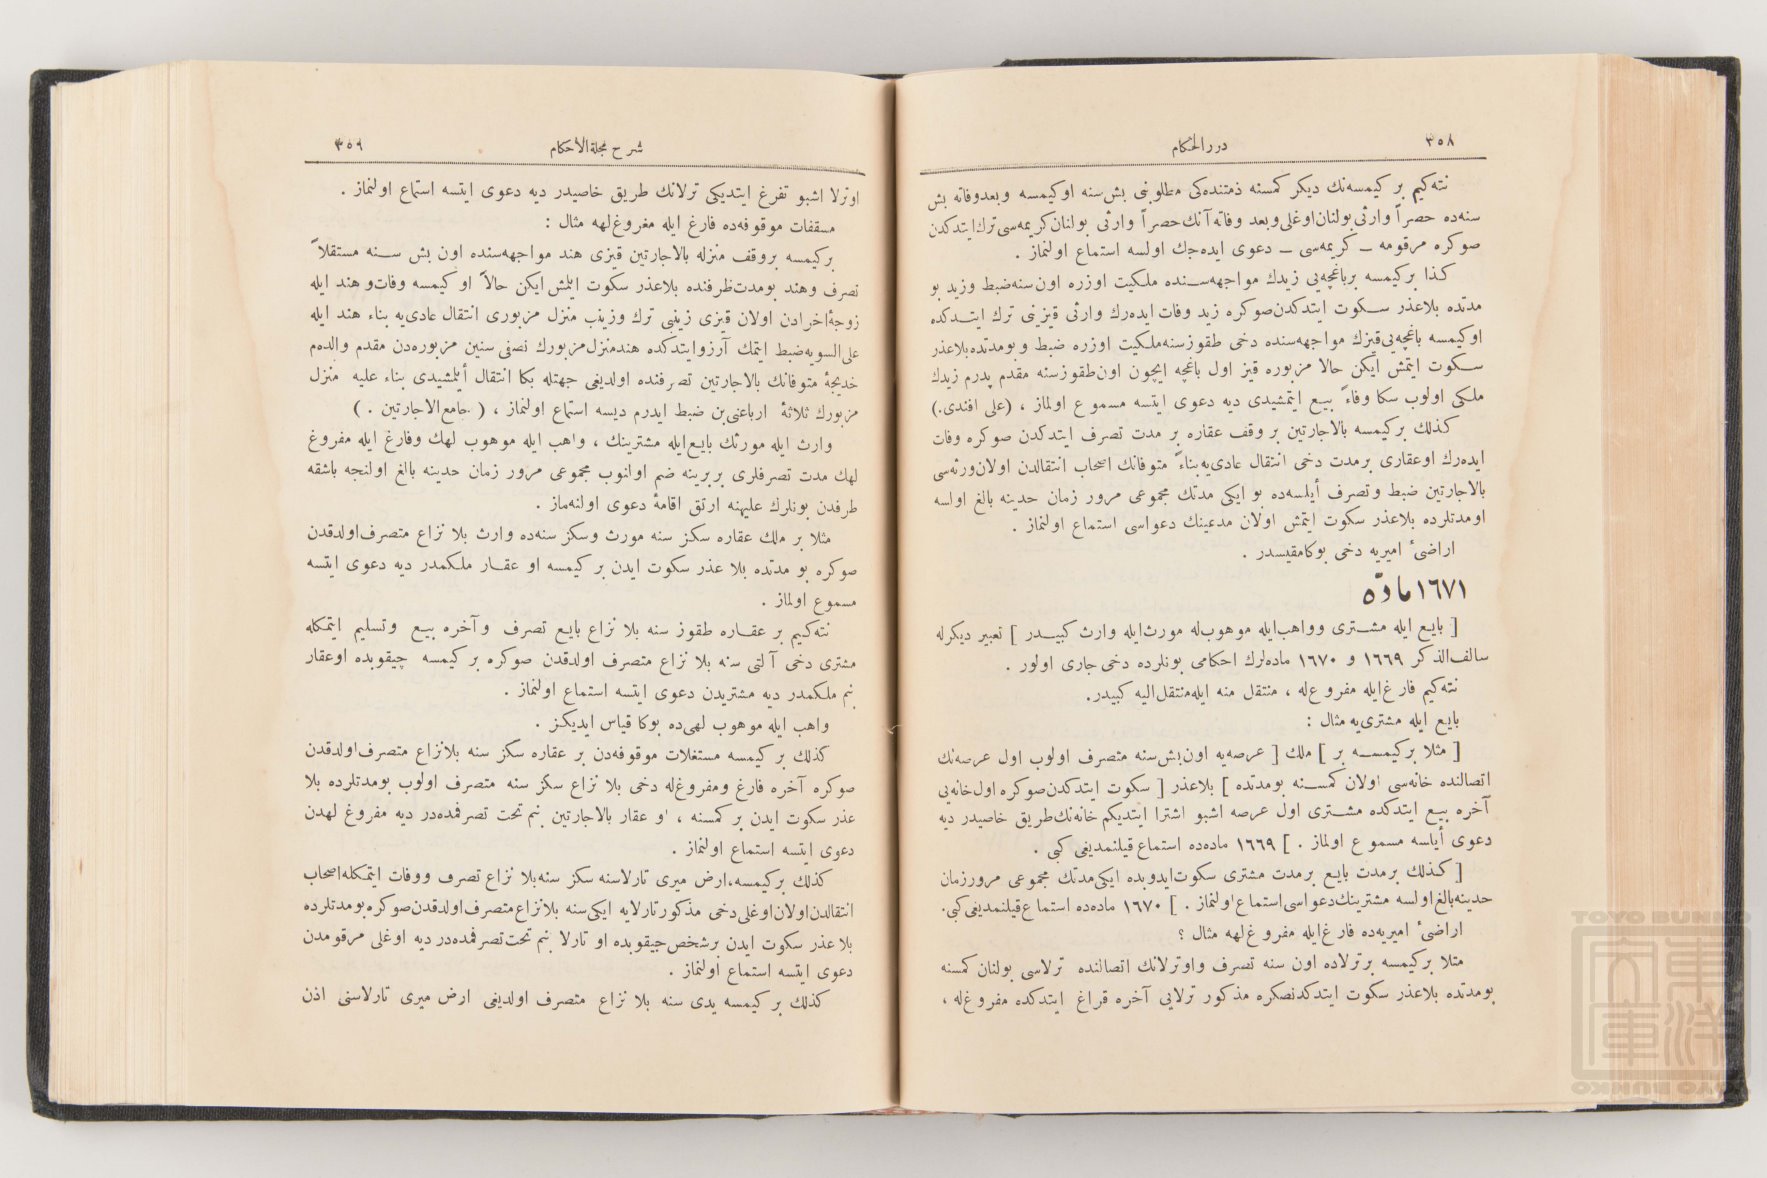 ٣٥٨
درر الحكام
نته‌كیم بر كیمسه‌نك دیكر كمسنه ذمتنده‌كی مطلوبنی بش سنه اوكیمسه وبعدوفاته بش
سنه‌ده حصراً وارثی بولنان اوغلی وبعد وفاته آنك حصراً وارثی بولنان كریمه‌سی ترك ایتدكدن
صوكره مرقومه ـ كریمه‌سی ـ دعوی ایده‌جك اولسه استماع اولنماز .
كذا بر كیمسه بر باغچه‌یی زیدك مواجهه‌سنده ملكیت اوزره اون سنه ضبط وزید بو
مدتده بلاعذر سكوت ایتدكدن صوكره زید وفات ایده‌رك وارثی قیزینی ترك ایتدكده
اوكیمسه باغچه‌یی قیزك مواجهه‌سنده دخی طقوز سنه ملكیت اوزره ضبط وبومدتده بلاعذر
سكوت ایتمش ایكن حالا مزبوره قیز اول باغچه ایچون اون طقوز سنه مقدم پدرم زیدك
ملكی اولوب سكا وفاءً بیع ایتمشیدی دیه دعوی ایتسه مسموع اولماز ، (علی افندی.)
كذلك بر كیمسه بالاجارتین بر وقف عقاره بر مدت تصرف ایتدكدن صوكره وفات
ایده‌رك اوعقاری برمدت دخی انتقال عادی‌یه بناءً متوفانك اصحاب انتقالدن اولان ورثه‌سی
بالاجارتین ضبط وتصرف أیلسه‌ده بو ایكی مدتك مجموعی مرور زمان حدینه بالغ اولسه
اومدتلرده بلاعذر سكوت ایتمش اولان مدعینك دعواسی استماع اولنماز .
اراضیٔ امیریه دخی بوكا مقیسدر .
١٦٧١ مادّه
[ بایع ایله مشتری وواهب ایله موهوب‌له مورث ایله وارث كبیدر ] تعبیر دیكرله
سالف‌الذكر ١٦٦٩ و ١٦٧٠ ماده‌لرك احكامی بونلرده دخی جاری اولور .
نته‌كیم فارغ ایله مفروغ‌له ، منتقل منه ایله منتقل‌الیه كبیدر.
بایع ایله مشتری‌یه مثال :
[ مثلا بر كیمسه بر ] ملك [ عرصه‌یه اون‌بش سنه متصرف اولوب اول عرصه‌نك
اتصالنده خانه‌سی اولان كمسنه بومدتده ] بلاعذر [ سكوت ایتدكدن صوكره اول خانه‌یی
آخره بیع ایتدكده مشتری اول عرصه اشبو اشترا ایتدیكم خانه‌نك طریق خاصیدر دیه
دعوی أیلسه مسموع اولماز . ] ١٦٦٩ ماده‌ده استماع قیلنمدیغی كبی .
[ كذلك برمدت بایع برمدت مشتری سكوت ایدوبده ایكی مدتك مجموعی مرورزمان
حدینه بالغ اولسه مشترینك دعواسی استماع اولنماز . ] ١٦٧٠ ماده‌ده استماع قیلنمدیغی كبی.
اراضیٔ امیریه‌ده فارغ ایله مفروغ لهه مثال ؟
مثلا بر كیمسه بر ترلاده اون سنه تصرف واوترلانك اتصالنده ترلاسی بولنان كمسنه
بومدتده بلاعذر سكوت ایتدكدنصكره مذكور ترلایی آخره فراغ ایتدكده مفروغ‌له ،
٣٥٩
شرح مجلة الأحكام
اوترلا اشبو تفرغ ایتدیكی ترلانك طریق خاصیدر دیه دعوی ایتسه استماع اولنماز .
مسقفات موقوفه‌ده فارغ ایله مفروغ لهه مثال :
بركیمسه بروقف منزله بالاجارتین قیزی هند مواجهه‌سنده اون بش سنه مستقلاً
تصرف وهند بومدت ظرفنده بلاعذر سكوت ایلمش ایكن حالاً او كیمسه وفات و هند ایله
زوجهٔ اخرادن اولان قیزی زینبی ترك وزینب منزل مزبوری انتقال عادی‌یه بناء هند ایله
علی‌السویه ضبط ایتمك آرزو ایتدكده هند منزل مزبورك نصفی سنین مزبوره‌دن مقدم والده‌م
خدیجهٔ متوفانك بالاجارتین تصرفنده اولدیغی جهتله بكا انتقال أیلمشیدی بناء علیه منزل
مزبورك ثلاثهٔ ارباعنی بن ضبط ایدرم دیسه استماع اولنماز ، ( جامع الاجارتین . )
وارث ایله مورثك بایع ایله مشترینك ، واهب ایله موهوب لهك وفارغ ایله مفروغ
لهك مدت تصرفلری بربرینه ضم اولنوب مجموعی مرور زمان حدینه بالغ اولنجه باشقه
طرفدن بونلرك علیهنه ارتق اقامهٔ دعوی اولنه‌ماز .
مثلا بر ملك عقاره سكز سنه مورث وسكز سنه‌ده وارث بلا نزاع متصرف اولدقدن
صوكره بو مدتده بلا عذر سكوت ایدن بر كیمسه او عقار ملكمدر دیه دعوی ایتسه
مسموع اولماز .
نته‌كیم بر عقاره طقوز سنه بلا نزاع بایع تصرف وآخره بیع وتسلیم ایتمكله
مشتری دخی آلتی سنه بلا نزاع متصرف اولدقدن صوكره بر كیمسه چیقوبده اوعقار
بنم ملكمدر دیه مشتریدن دعوی ایتسه استماع اولنماز .
واهب ایله موهوب لهی‌ده بوكا قیاس ایدیكز .
كذلك بر كیمسه مستغلات موقوفه‌دن بر عقاره سكز سنه بلانزاع متصرف اولدقدن
صوكره آخره فارغ ومفروغ‌له دخی بلا نزاع سكز سنه متصرف اولوب بومدتلرده بلا
عذر سكوت ایدن بر كمسنه ، او عقار بالاجارتین بنم تحت تصرفمده‌در دیه مفروغ لهدن
دعوی ایتسه استماع اولنماز .
كذلك بركیمسه، ارض میری تارلاسنه سكز سنه بلا نزاع تصرف ووفات ایتمكله اصحاب
انتقالدن اولان اوغلی دخی مذكور تارلایه ایكی سنه بلانزاع متصرف اولدقدن صوكره بومدتلرده
بلا عذر سكوت ایدن برشخص چیقوبده او تارلا بنم تحت تصرفمده‌در دیه اوغلی مرقومدن
دعوی ایتسه استماع اولنماز .
كذلك بر كیمسه یدی سنه بلا نزاع متصرف اولدیغی ارض میری تارلاسنی اذن
TOYO BUNKO
東洋文庫
TOYO BUNKO